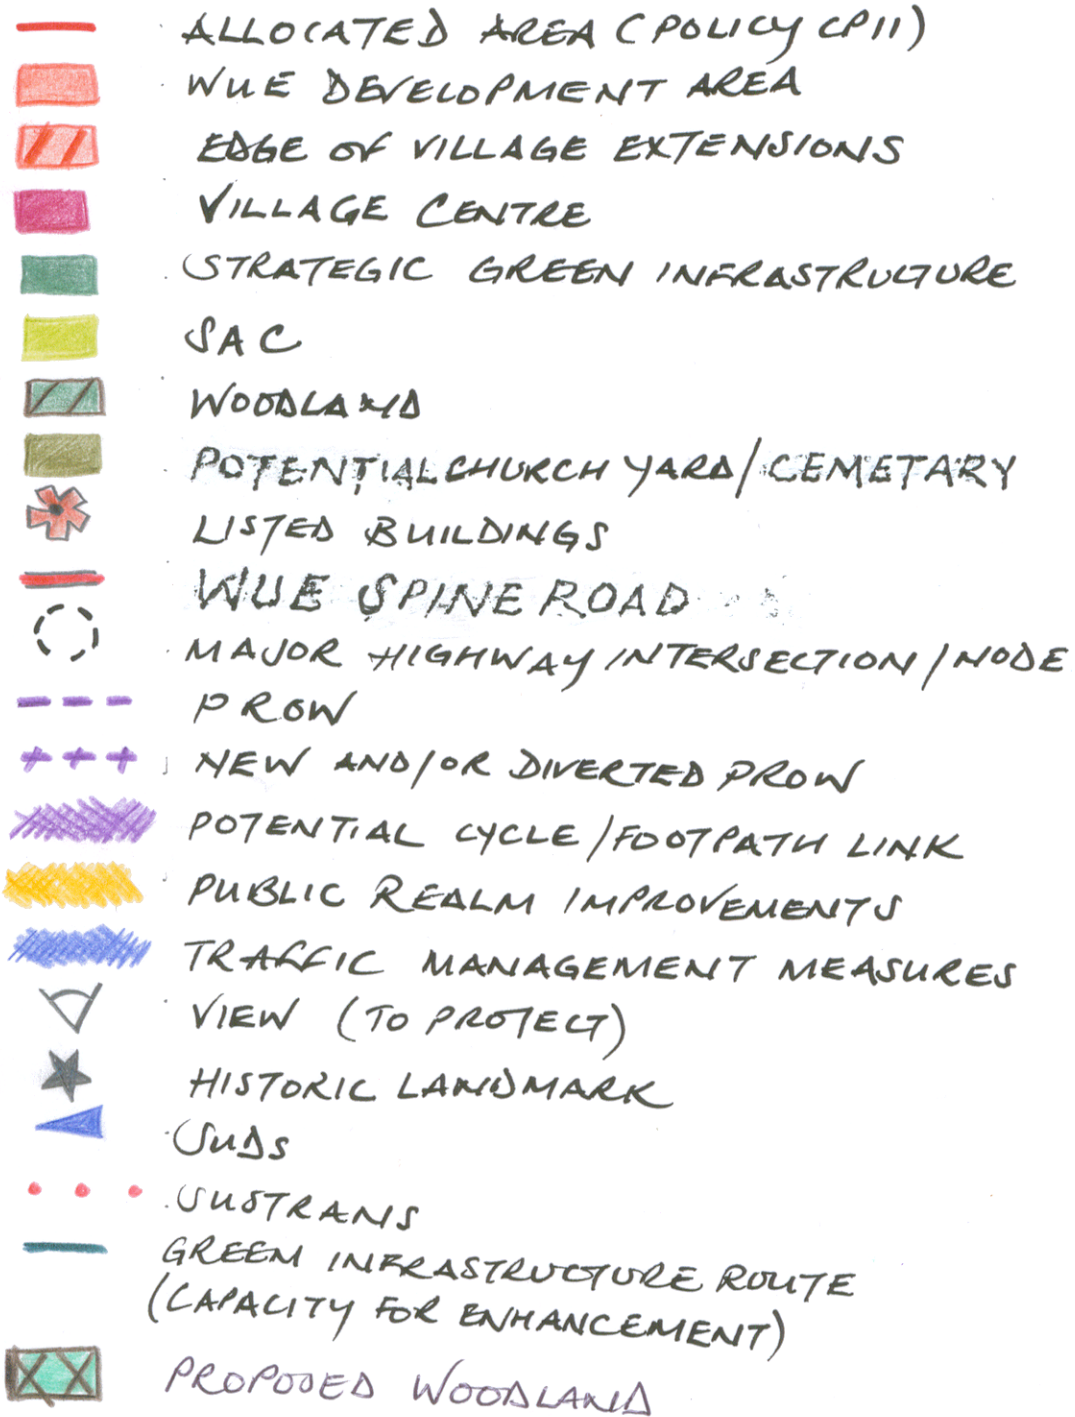 ALLOCATED AREA (POLICY CP11)
WUE DEVELOPMENT AREA
EDGE OF VILLAGE EXTENSIONS
VILLAGE CENTRE
STRATEGIC GREEN INFRASTRUCTURE
SAC
WOODLAND
POTENTIAL CHURCH YARD/CEMETARY
LISTED BUILDINGS
WUE SPINE ROAD
MAJOR HIGHWAY INTERSECTION/NODE
PROW
NEW AND/OR DIVERTED PROW
POTENTIAL CYCLE/FOOTPATH LINK
PUBLIC REALM IMPROVEMENTS
TRAFFIC MANAGEMENT MEASURES
VIEW (TO PROTECT)
HISTORIC LANDMARK
SuDS
SUSTRANS
GREEN INFRASTRUCTURE ROUTE
(CAPACITY FOR ENHANCEMENT)
PROPOSED WOODLAND